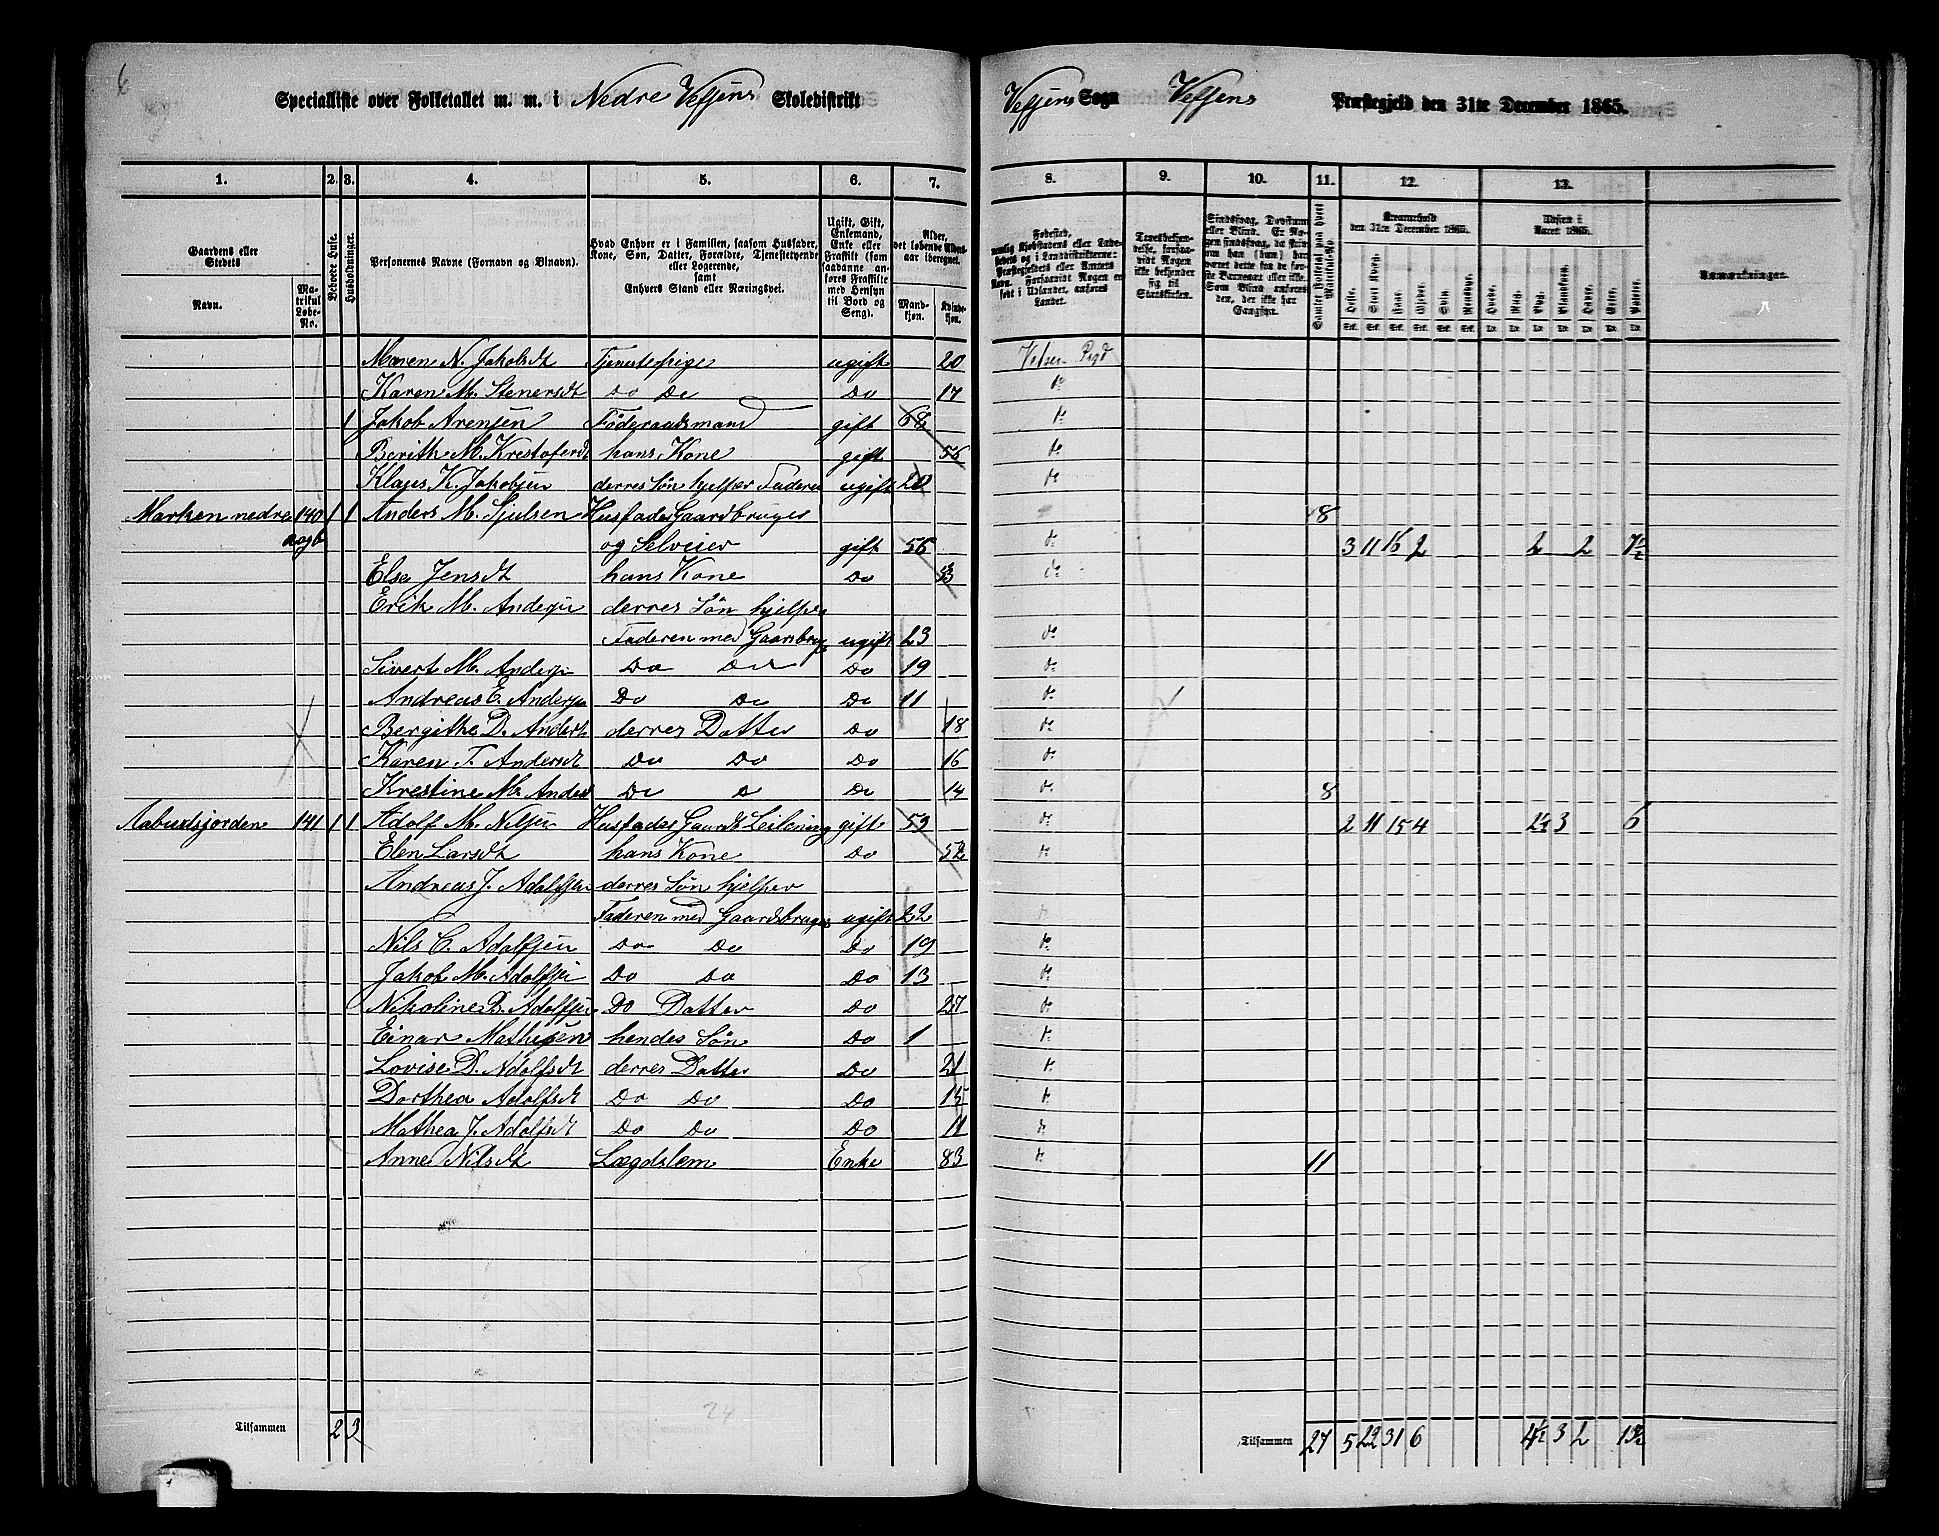 6
Specialliste over Folketallet m. m. i Nedre Vefsens Skoledistrikt
Vefsens Sogn Vefsens Præstegjeld den 31te December 1865.
1. 2. 3. 4. 5. 6. 7. 8. 9. 10. 11. 12. 13.
Gaardens eller Stedets
Navn.
Matrikul Løbe-No.
Beboede Huse.
Husholdninger.
Personernes Navne (Fornavn og Binavn).
Hvad Enhver er i Familien, saasom Husfader, Kone, Søn, Datter, Forældre, Tjenestetyende eller Logerende, samt Enhvers Stand eller Næringsvei.
Ugift, Gift, Enkemand, Enke eller Fraskilt (som saadanne anføres Fraskilte med Hensyn til Bord og Seng).
Alder, det løbende Alders-aar iberegnet.
Mand-kjøn. Kvinde-kjøn.
Fødested,
Kreaturhold den 31te December 1865.
Udsæd i Aaret 1865.
Anmærkninger.
Maren N. Jakobsdt Tjenestepige ugift 20
Karen M. Stenersdt Do Do Do 17
1 Jakob Arensen Föderaadsmand gift 68
Berith M. Kristofersdt hans Kone gift 55
Klaus K. Jakobsen derres Søn hjelper Faderen ugift 20
Marken nedre 140 1 1 Anders M. Sjulsen Husfader Gaardbruger 8
a og b og Selveier gift 56 3 11 16 2 2 2 7½
Else Jensdt hans Kone Do 53
Erik M. Andersen derres Søn hjelper
Faderen med Gaardsbrug ugift 23
Sivert M. Andersen Do Do Do 19
Andreas E. Andersen Do Do Do 11
Bergithe D. Andersdt derres Datter Do 18
Karen T. Andersdt Do Do Do 16
Krestine M. Andersd Do Do Do 14 8
Aabudsjorden 141 1 1 Adolf M. Nilsen Husfader Gaardb Leilening gift 53 2 11 15 4 2½ 3 6
Elen Larsdt hans Kone Do 52
Andreas J. Adolfsen derres Søn hjelper
Faderen med Gaardsbruget ugift 22
Nils C. Adolfsen Do Do Do 19
Jakob M. Adolfsen Do Do Do 13
Nikoline B. Adolfsen Do Datter Do 27
Einar Mathisen hendes Søn Do 1
Lovise D. Adolfsdt derres Datter Do 21
Dorthea Adolfsdt Do Do Do 15
Mathea J. Adolfsdt Do Do Do 11
Anne Nilsdt Lægdslem Enke 83 11
24
Tilsammen 2 3
Tilsammen 27 5 22 31 6 4½ 3 2 13½